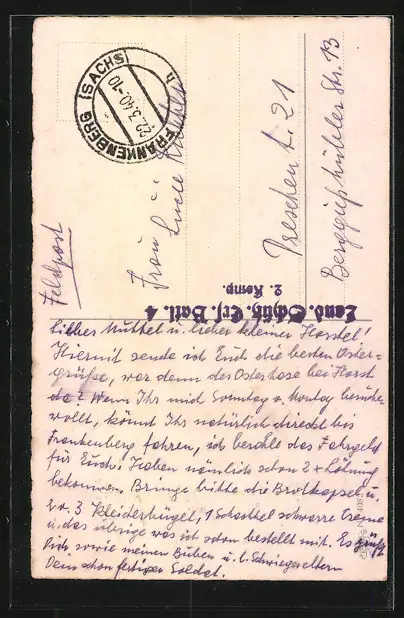 FRANKENBERG (SACHS)
22.3.40.-10
h
Feldpost
Frau
Lucie
Dresden A. 21
Berggießhübler Str. 13
Land. Schütz. Ers. Batl. 4
2. Komp.
Liebes Muttel u. lieber kleiner Horstel!
Hiermit sende ich Euch die besten Oster-
grüße, war denn der Osterhase bei Horst
da? Wenn Ihr mich Sonntag o. Montag besuchen
wollt, könnt Ihr natürlich direkt bis
Frankenberg fahren, ich bezahle das Fahrgeld
für Euch. Haben nämlich schon 2 x Löhnung
bekommen. Bringe bitte die Brotkapsel u.
2 o. 3 Kleiderbügel, 1 Schachtel schwarze Creme
u. das übrige was ich schon bestellt mit. Es grüßt
Dich sowie meinen Buben u. l. Schwiegereltern
Dein schon fertiger Soldat.